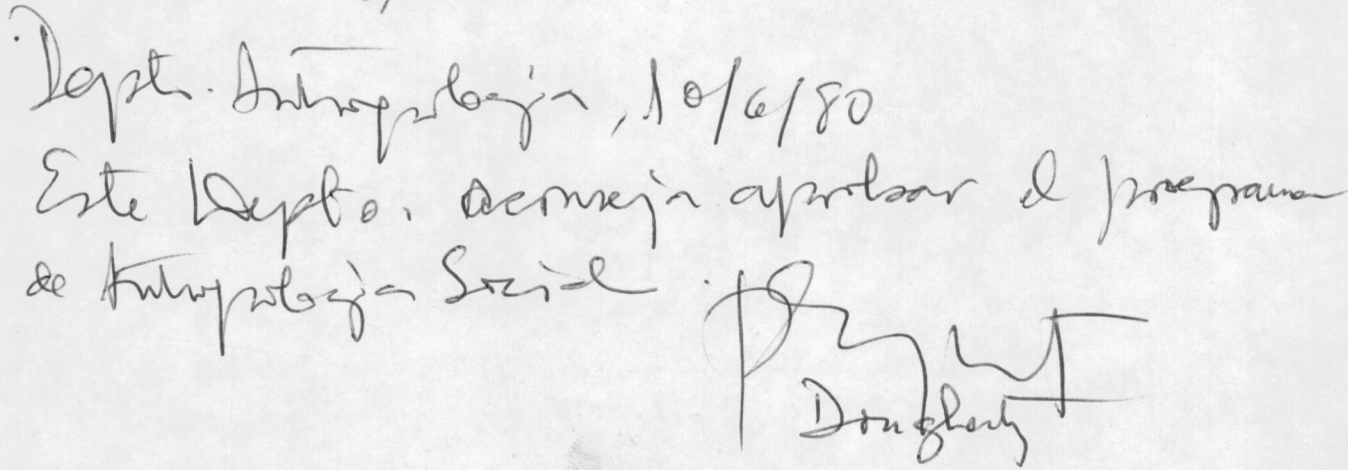 Depto. Antropología, 10/6/80
Este Depto. aconseja aprobar el programa
de Antropología Social.
Dougherty